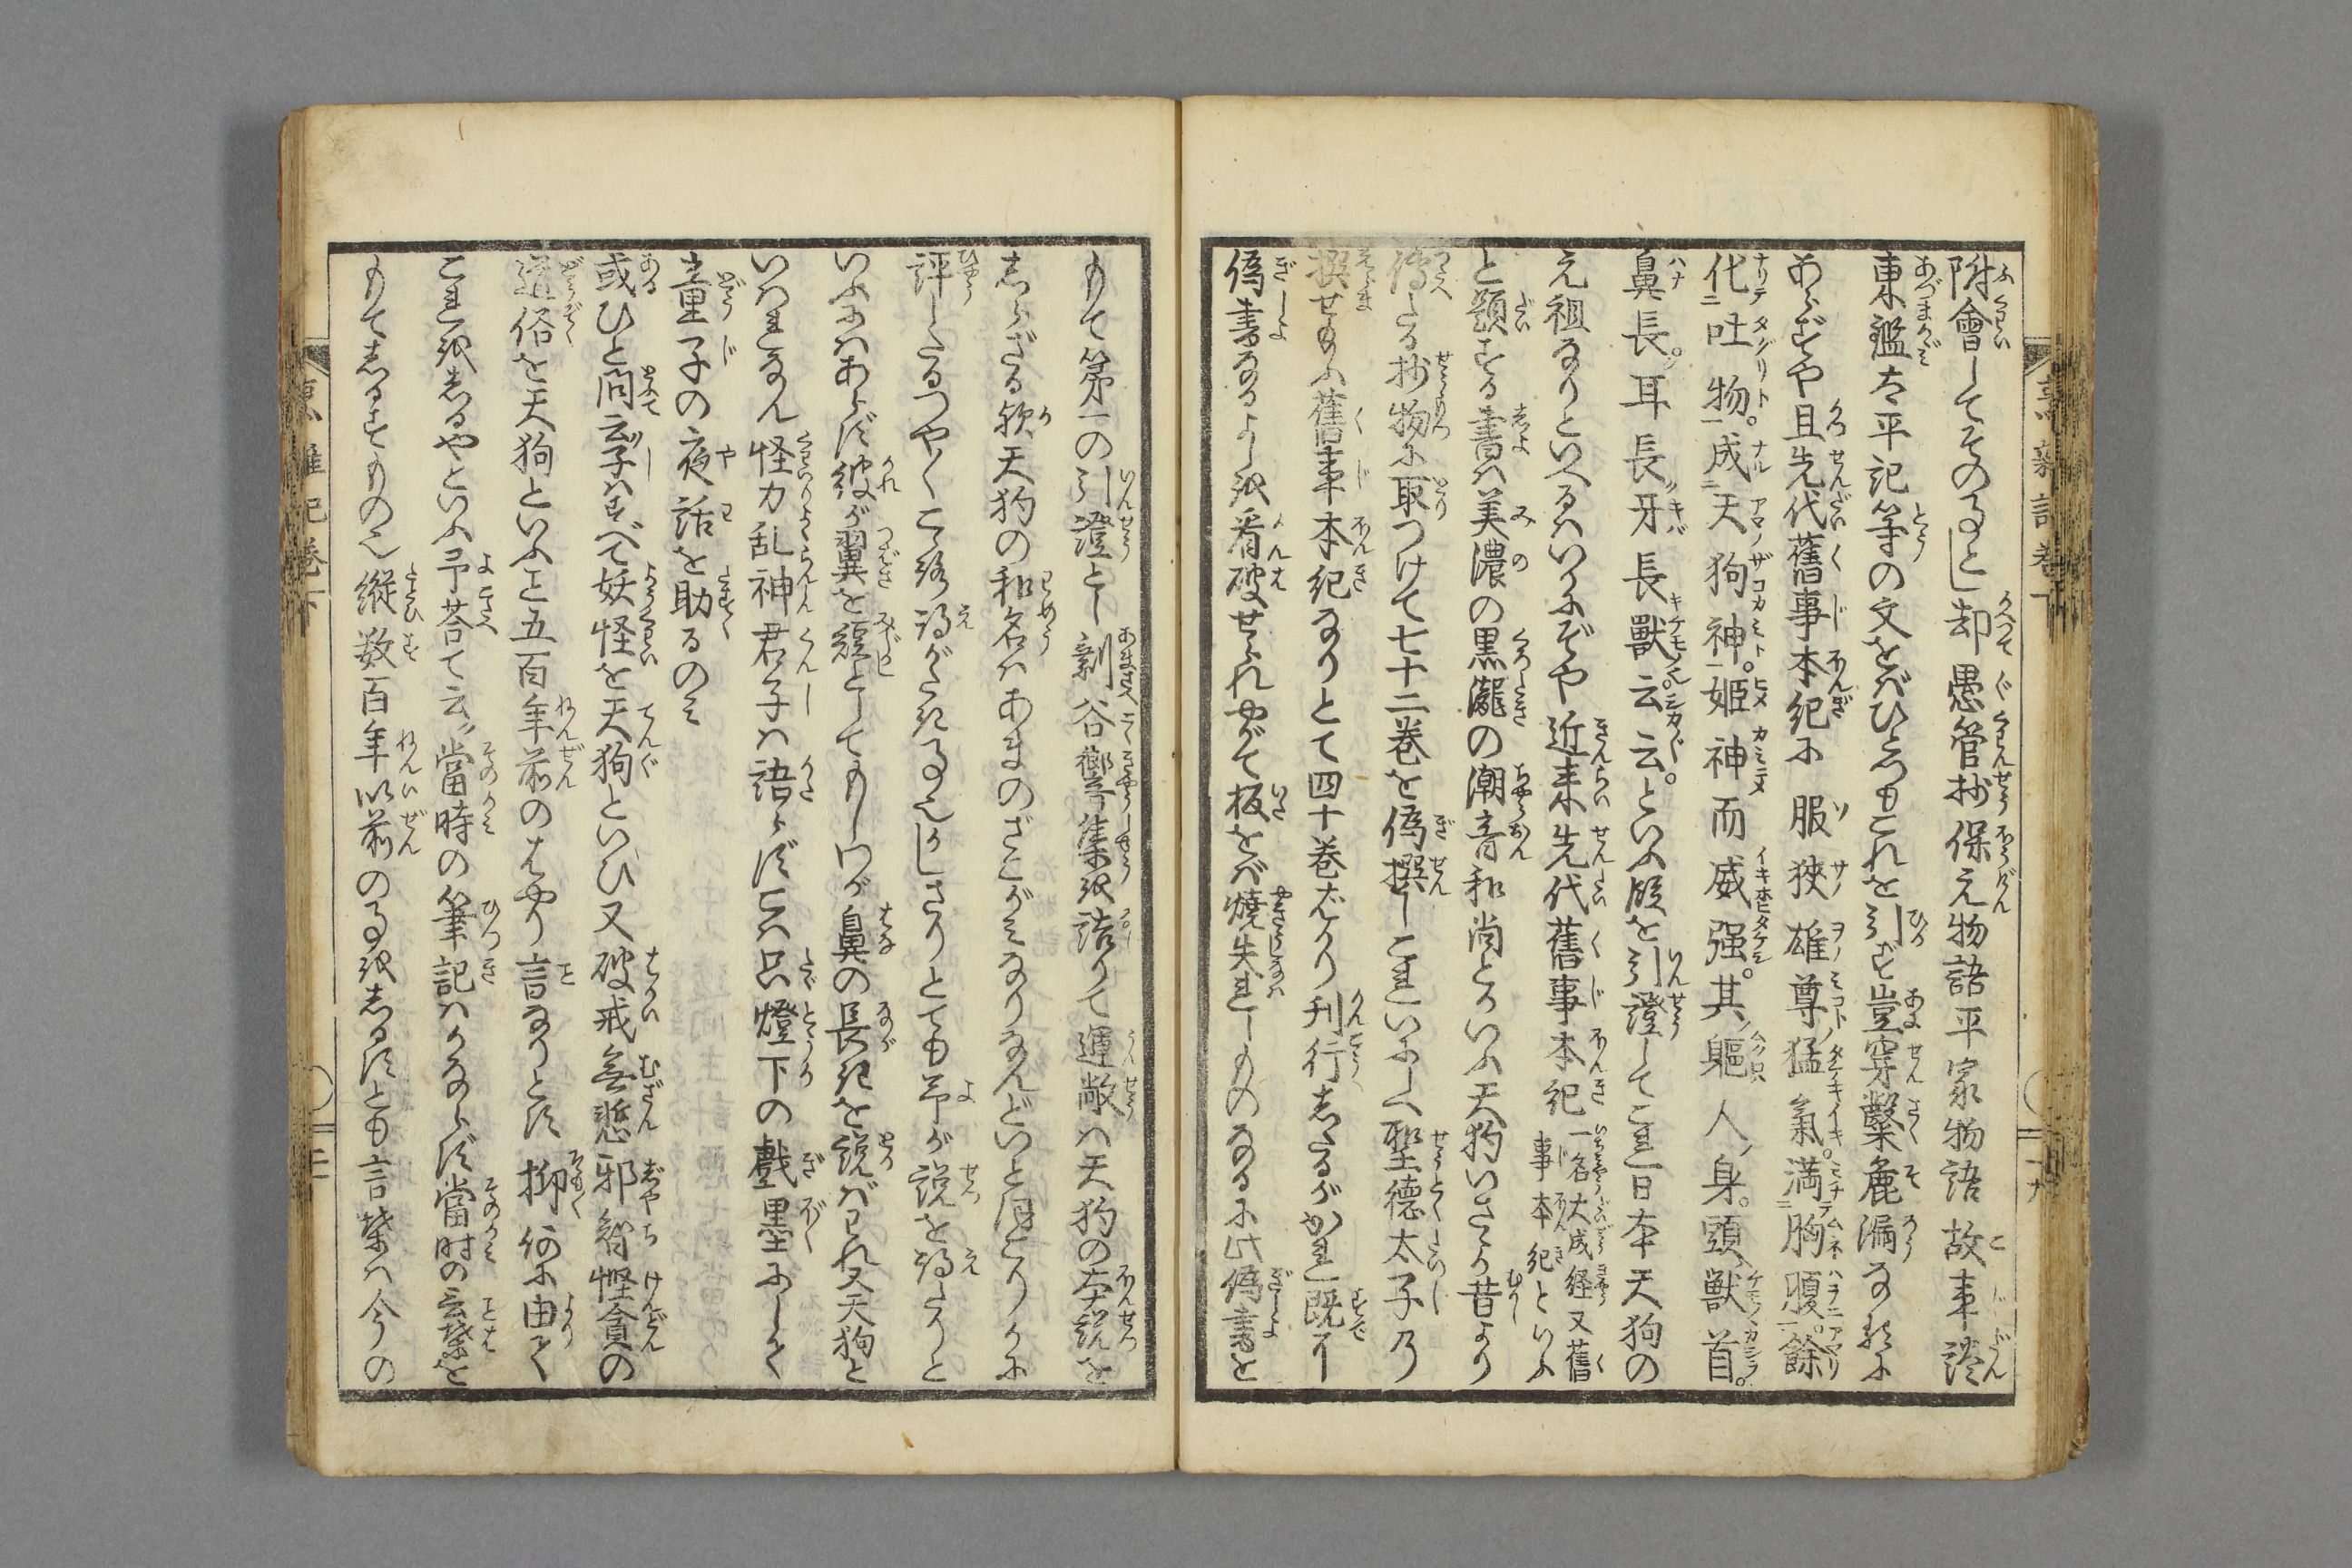 附會してその事とし却愚管抄保元物語平家物語故事談
東鑑太平記等の文をばひとつもこれを引ず豈穿鑿麁漏の
あらずや且先代舊事本紀に服狹雄尊猛氣満胸腹餘
化吐物成天狗神姫神而威强其軀人身頭獸首
鼻長耳長牙長獸云云といふ段を引證してこれ日本天狗の
元祖なりといへるはいかにぞや近来先代舊事本紀一名大成経又舊事本紀といふ
と題する書は美濃の黒瀧の潮音和尚とかいふ天狗いさゝか昔より
傳たる抄物に取つけて七十二巻を偽撰しこれいにしへ聖徳太子の
撰せものふ舊事本紀なりとて四十巻ばかり刊行したるがかれ既に
偽書なるよし看破せられやがて板をば焼失れしものなるに此偽書を
もて第一の引證とし剰谷響集を詰りて運敞は天狗の本説を
しらざる歟天狗の和名はあまのざこがみなりなんどいと

評したるつや〳〵こゝろ得がたき事也しかしさりとても予が説を得たりと
いふにはあらず彼が翼を短としてもしわが鼻の長きを説ばわれ又天狗と
いはれなん怪力乱神君子は語らずこは只燈下の戲墨にしく
童子の夜話を助るのみ
或ひと問云予はすべて妖怪を天狗といひ又破戒無慙邪智慳貪の
道俗を天狗といふこと五百年前のはやり言なりとぞ抑何に由て
これをしるやといふ予荅て云當時の筆記はかならず當時の言葉を
もてしるすもの也縦数百年以前の事をしるすとも言葉は今の